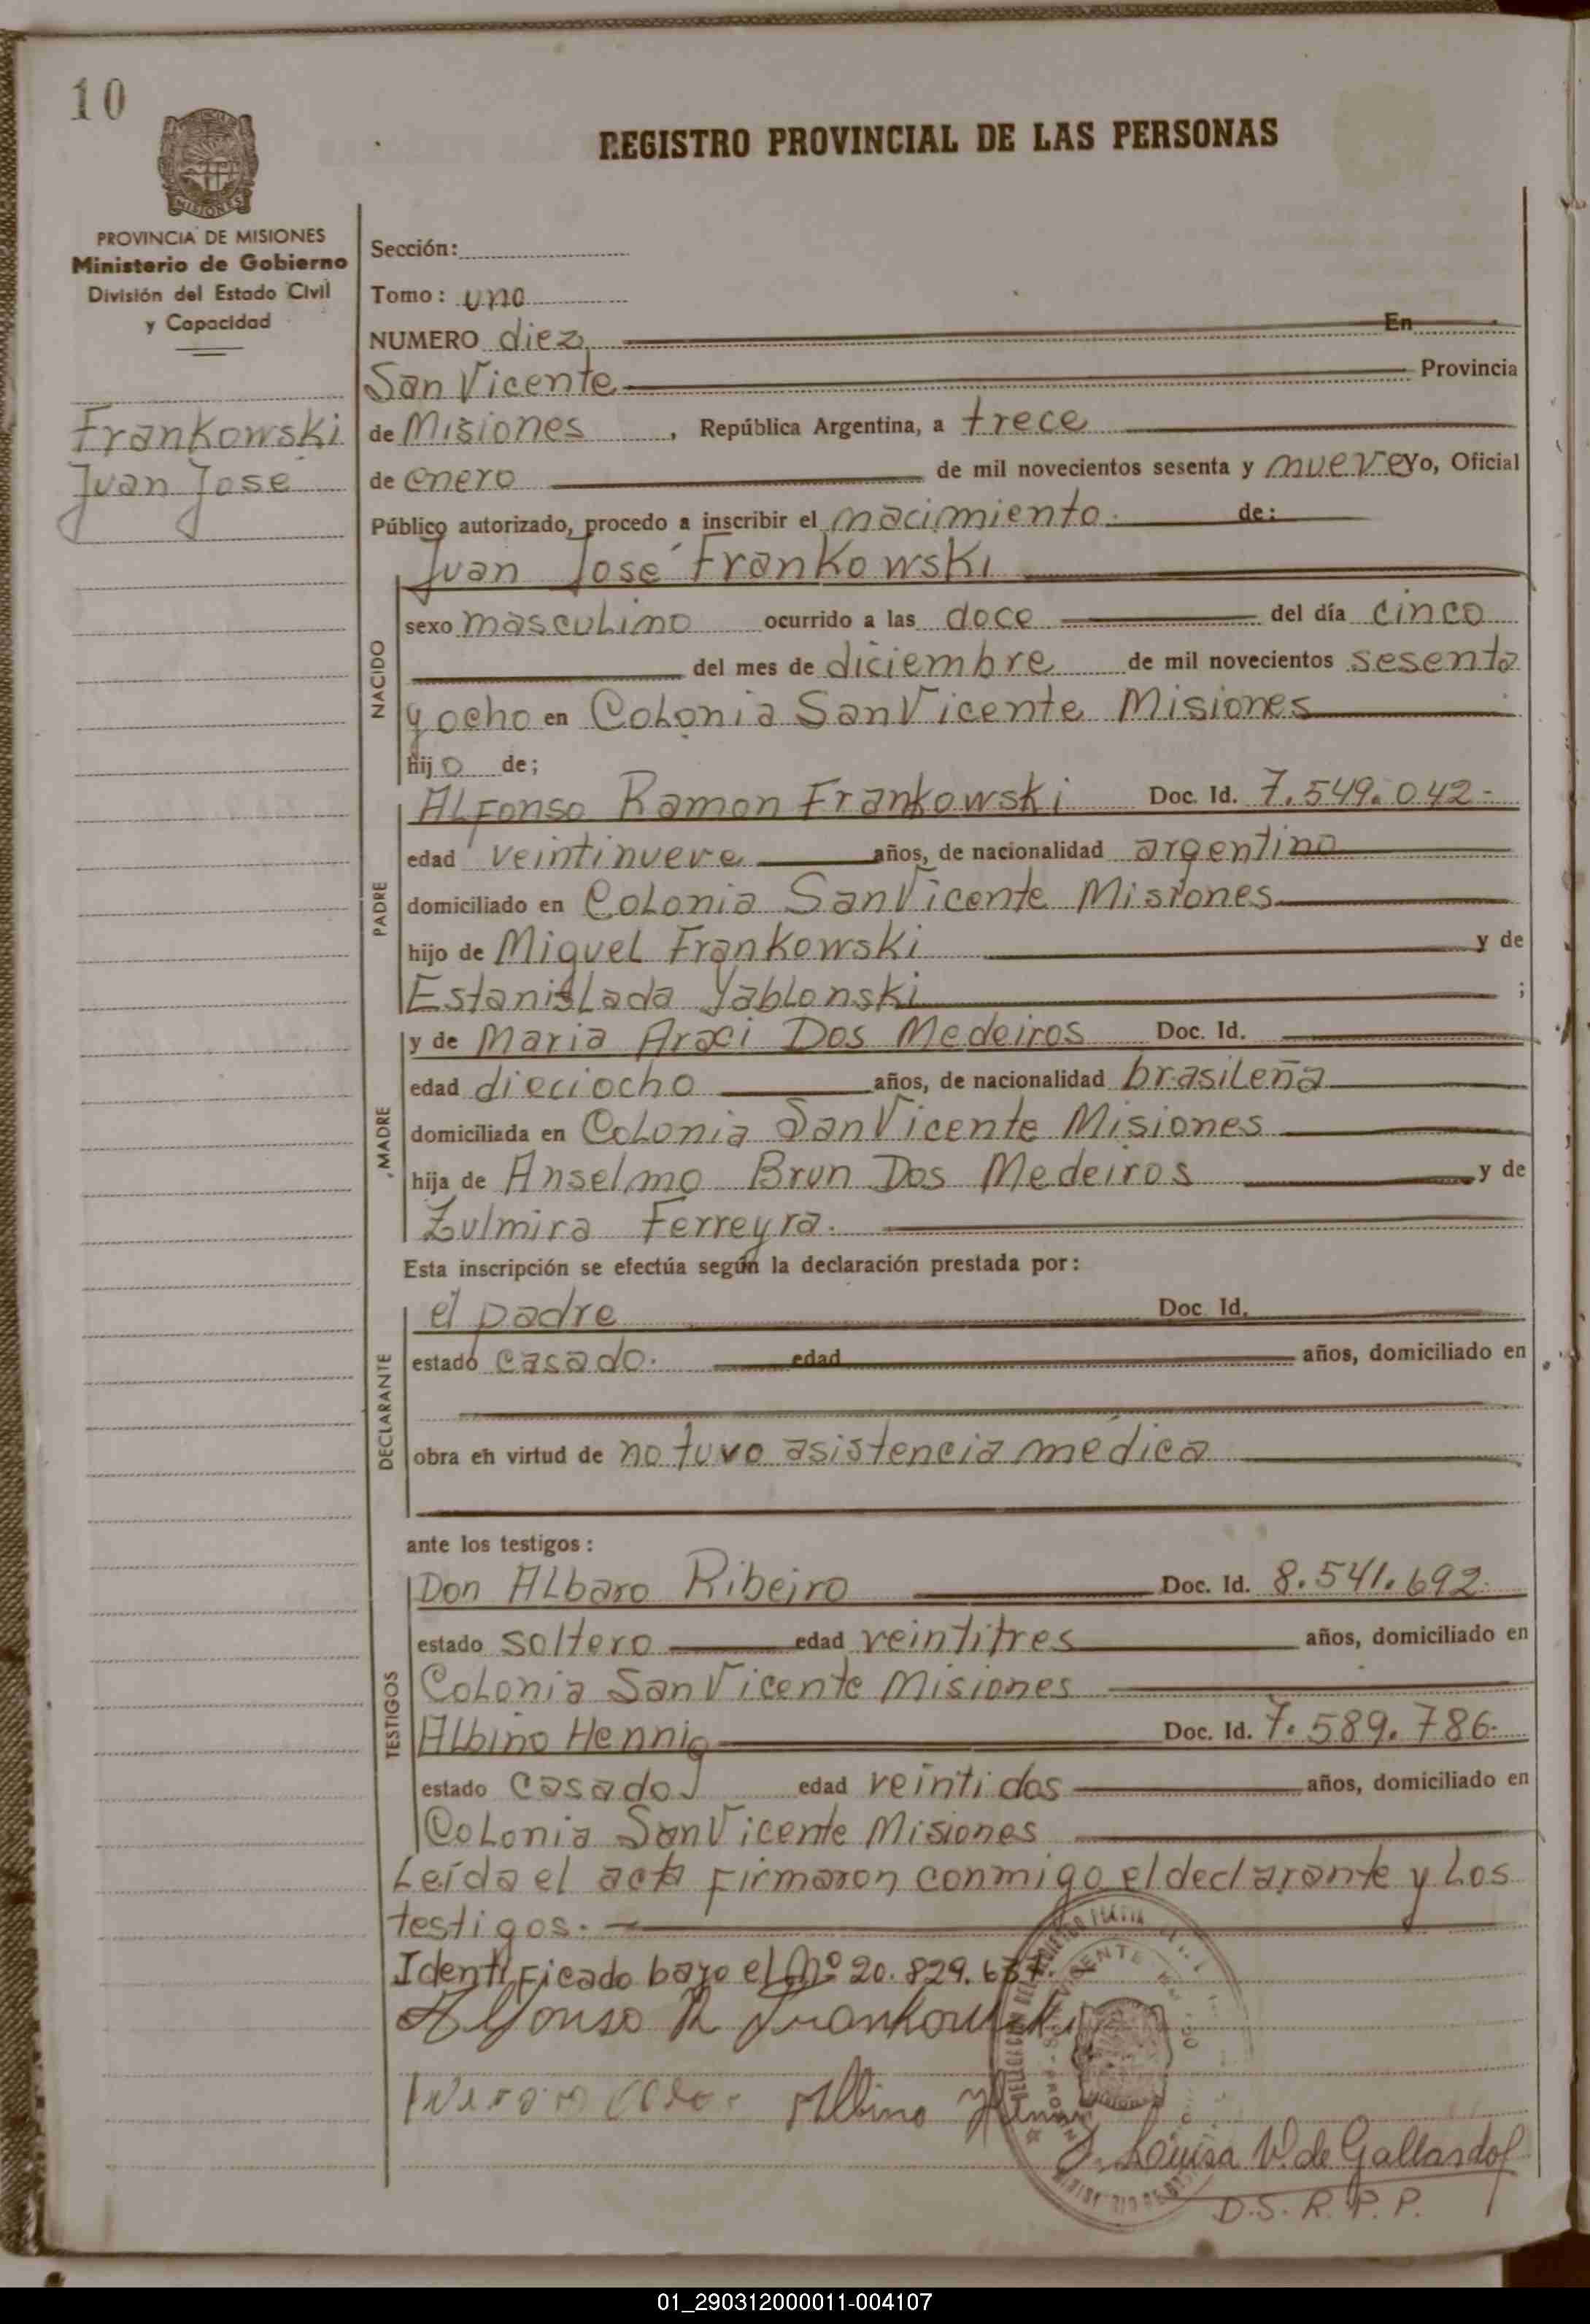 10
MISIONES
REGISTRO PROVINCIAL DE LAS PERSONAS
PROVINCIA DE MISIONES
Ministerio de Gobierno
División del Estado Civil
y Capacidad
Frankowski
Juan Jose
Sección:
Tomo: uno
NUMERO diez En
San Vicente Provincia
de Misiones, República Argentina, a trece
de enero de mil novecientos sesenta y nueve yo, Oficial
Público autorizado, procedo a inscribir el nacimiento de:
Juan José Frankowski
NACIDO
sexo masculino ocurrido a las doce del día cinco
del mes de diciembre de mil novecientos sesenta
y ocho en Colonia San Vicente Misiones
hijo de;
PADRE
Alfonso Ramon Frankowski Doc. Id. 7.549.042-
edad veintinueve años, de nacionalidad argentino
domiciliado en Colonia San Vicente Misiones
hijo de Miguel Frankowski y de
Estanislada Yablonski ;
MADRE
y de Maria Araci Dos Medeiros Doc. Id.
edad dieciocho años, de nacionalidad brasileña
domiciliada en Colonia San Vicente Misiones
hija de Anselmo Brun Dos Medeiros y de
Zulmira Ferreyra.
Esta inscripción se efectúa según la declaración prestada por:
DECLARANTE
el padre Doc. Id.
estado casado. edad años, domiciliado en
obra en virtud de no tuvo asistencia médica
ante los testigos:
TESTIGOS
Don Albaro Ribeiro Doc. Id. 8.541.692.
estado soltero edad veintitres años, domiciliado en
Colonia San Vicente Misiones
Albino Hennig Doc. Id. 7.589.786.
estado casado edad veintidos años, domiciliado en
Colonia San Vicente Misiones
Leída el acta firmaron conmigo el declarante y los
testigos.-
Identificado bajo el Nº 20.829.637.
Alfonso R Frankowski
Albino
Louisa V. de Gallardo
D.S.R.P.P.
01_290312000011-004107